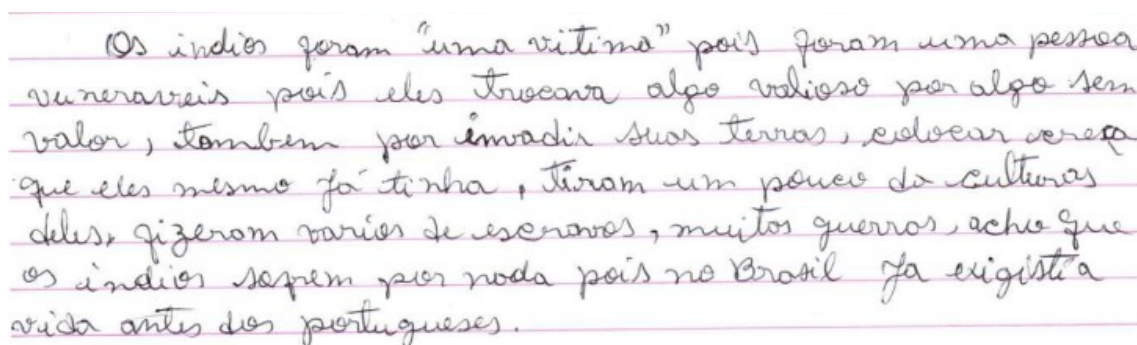 Os indios foram "uma vitima" pois foram uma pessoa
vuneraveis pois eles trocava algo valioso por algo sem
valor, tambem por invadir suas terras, colocar creça
que eles mesmo já tinha, tiram um pouco da culturas
deles, fizeram varios de escravos, muitos guerras, acho que
os índios sofrem por nada pois no Brasil ja exigistia
vida antes dos portugueses.